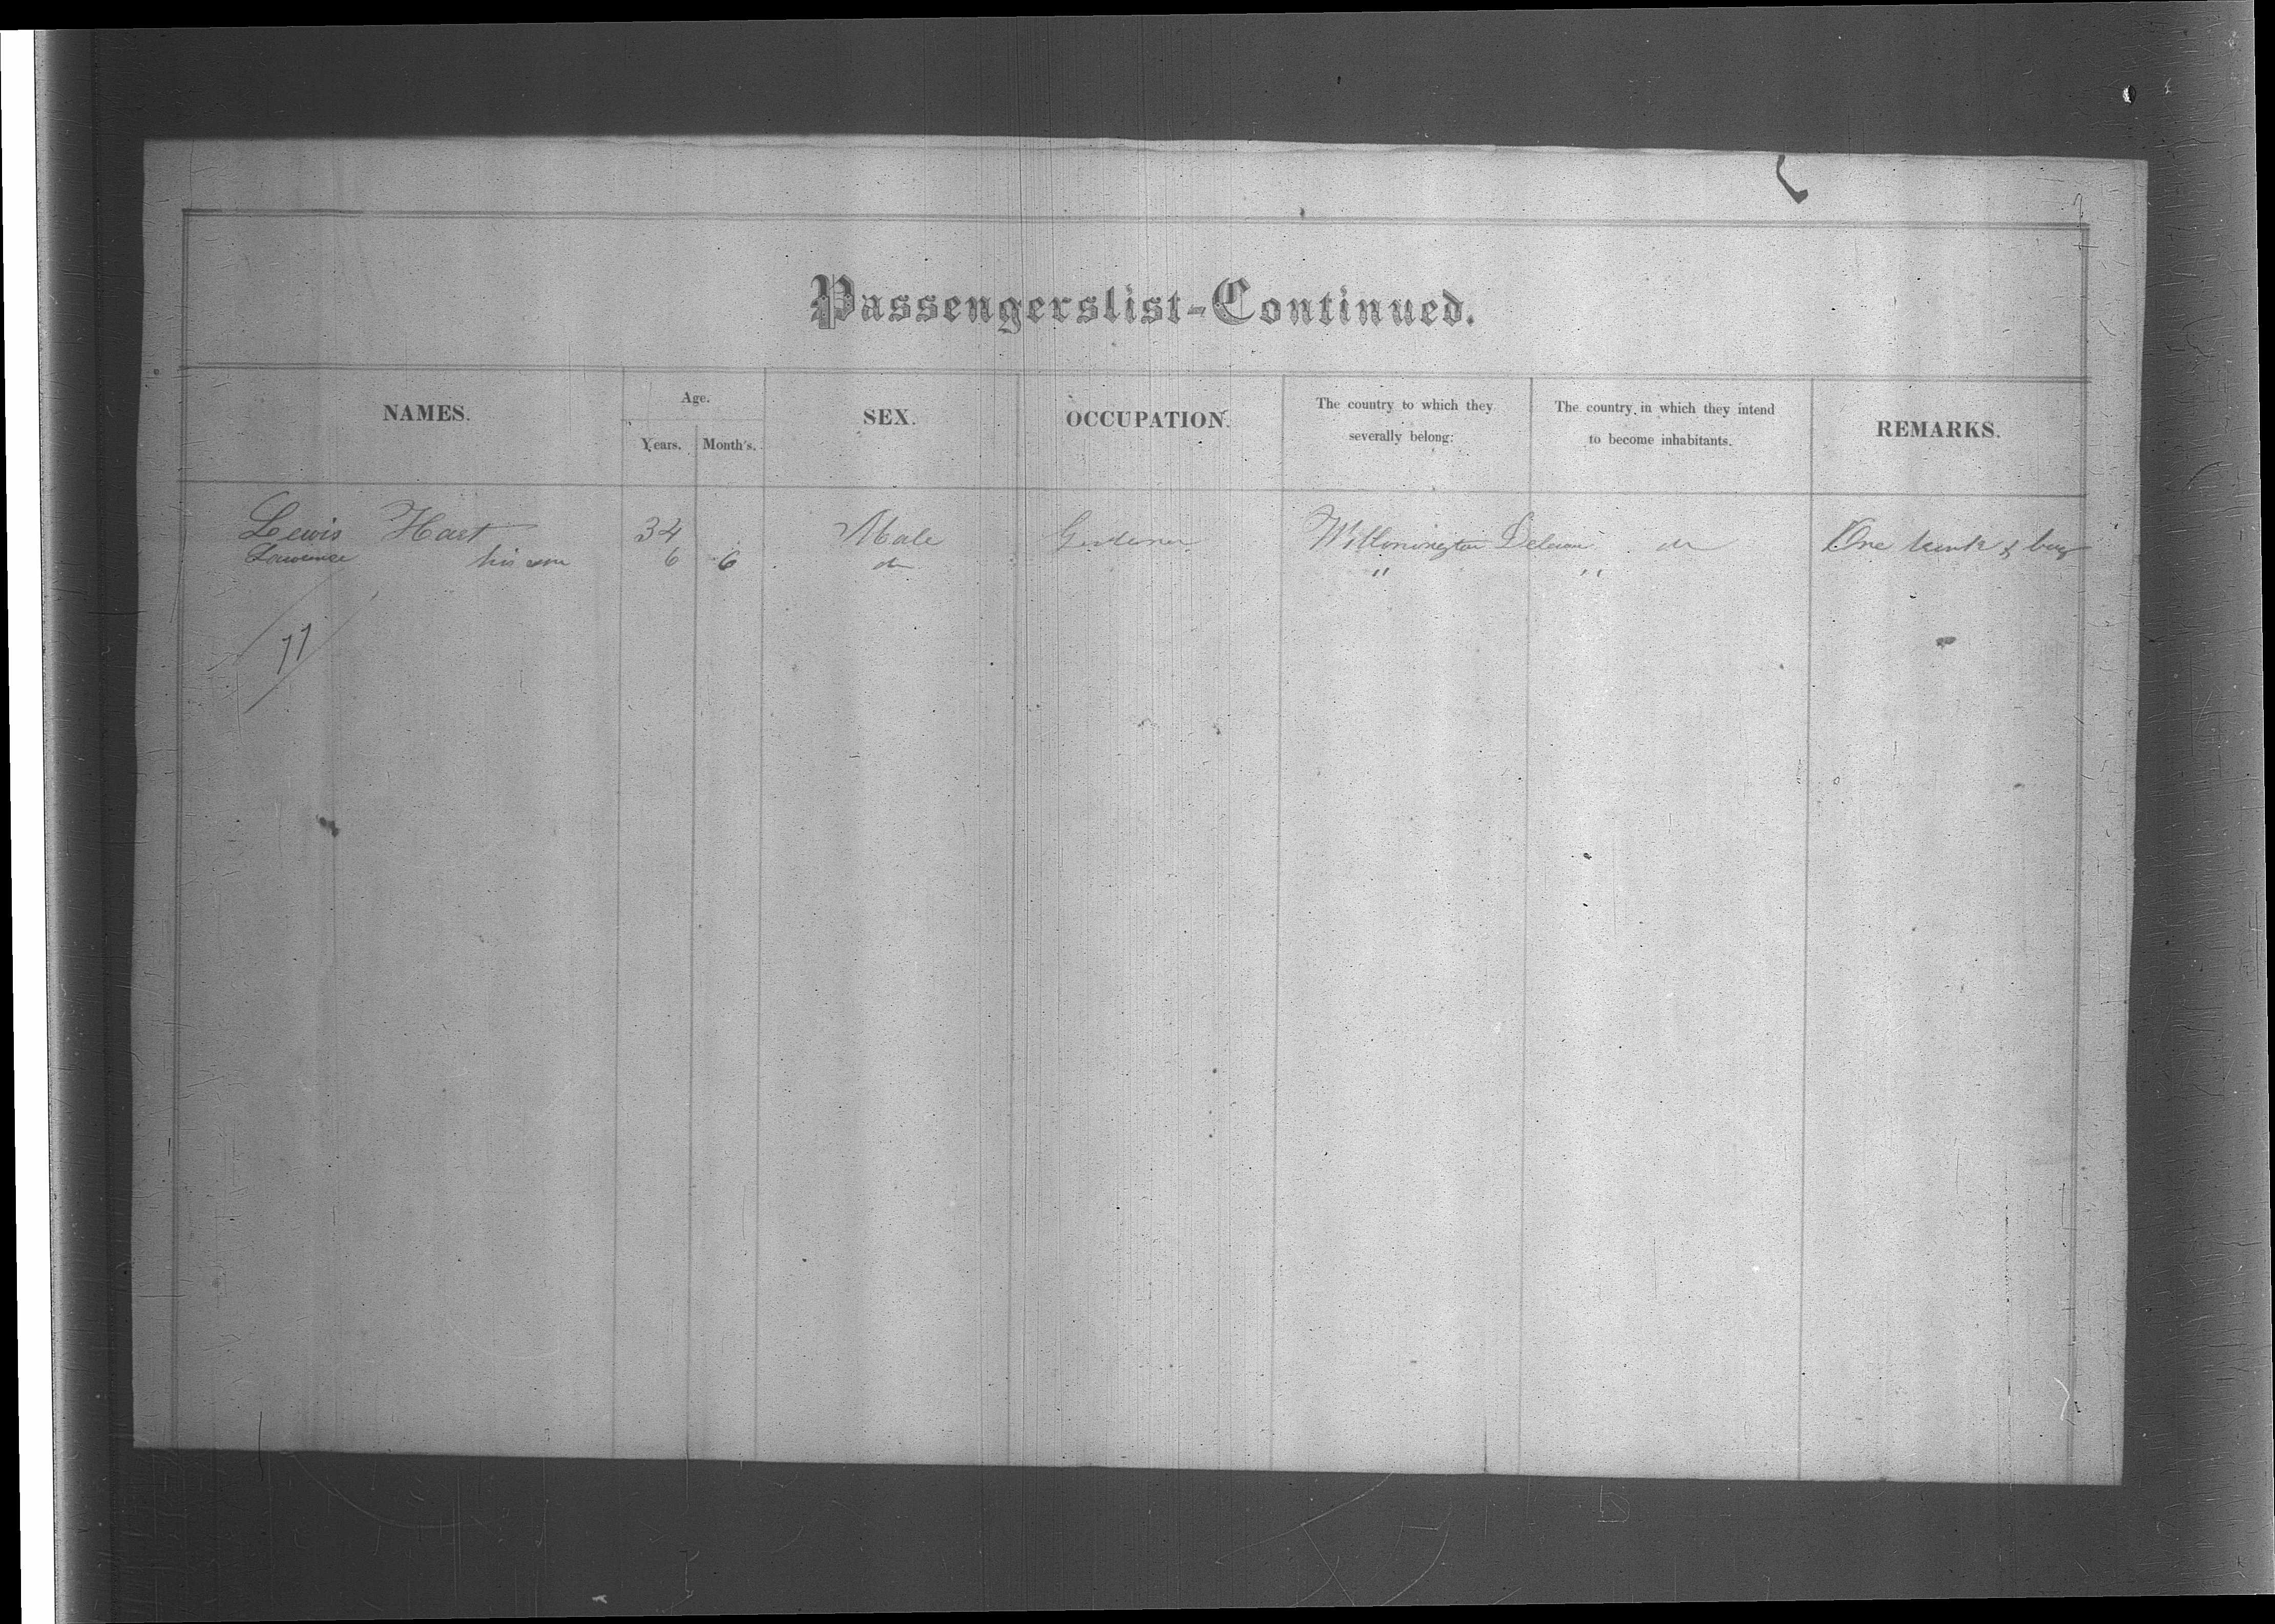 Passengerslist-Continued.
NAMES.
Age.
Years. Month's.
SEX.
OCCUPATION.
The country to which they
severally belong:
The country in which they intend
to become inhabitants.
REMARKS.
Lewis Hart 34 Male Gardener Willmington do One trunk & bag
Lawrence his son 6 6 do " "
77